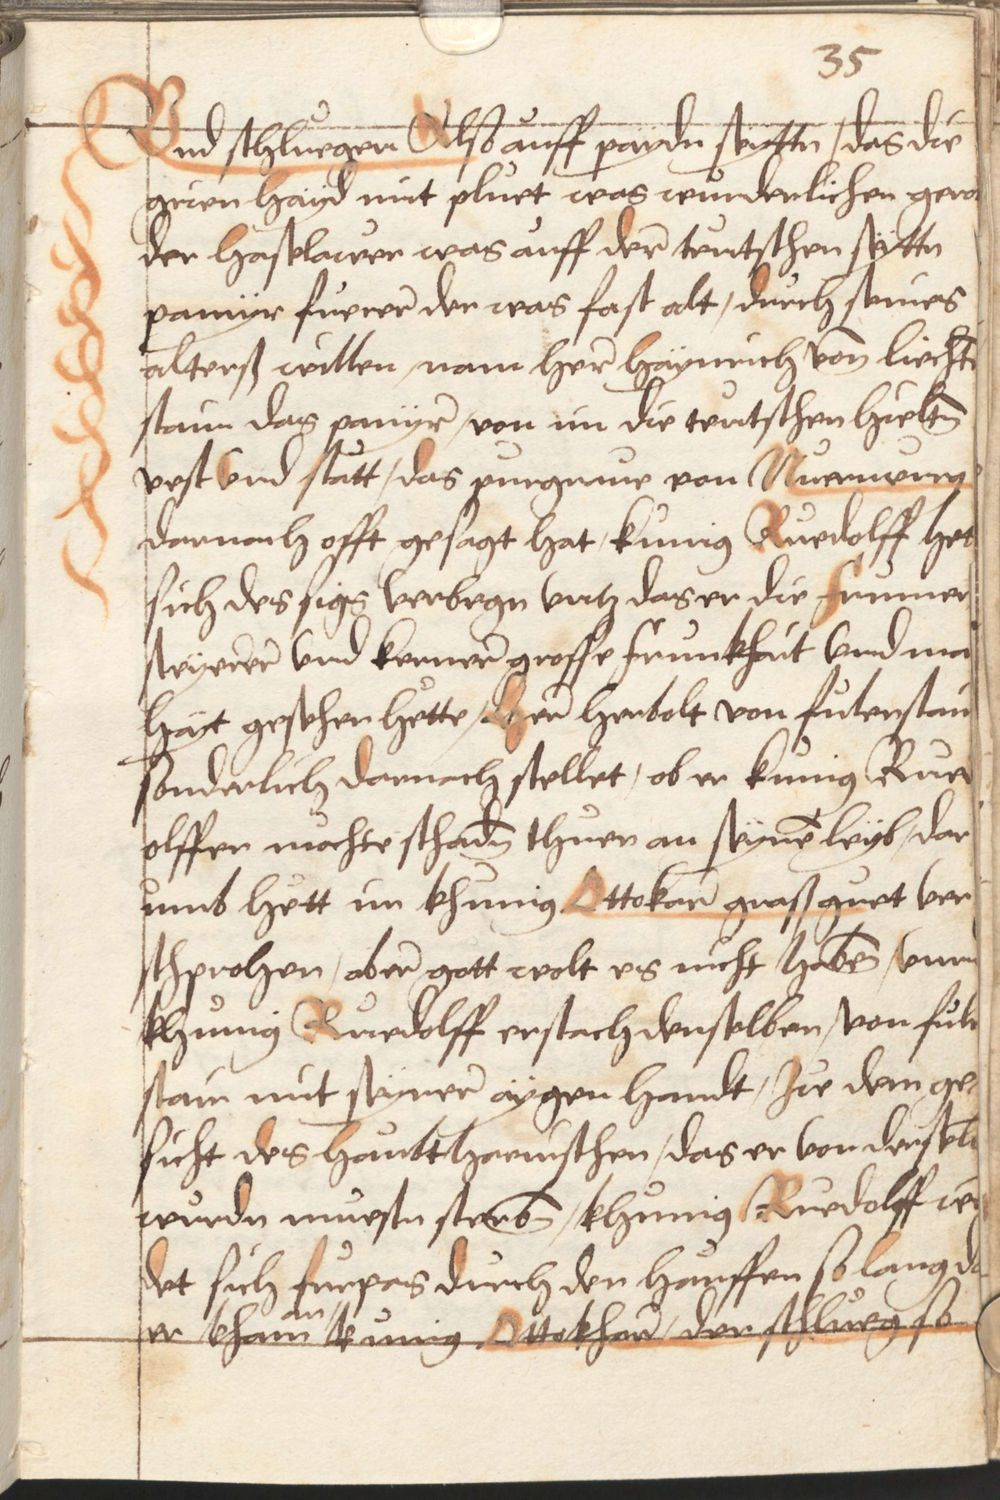 35
Vnd schluegen Also auff paydn seyttn / das die
gruen hayd mit pluet was wunderlichen gero
der Haslawer was auff der teutschen seyttn
panyr fuerer der was fast alt / durch seines
alterß willen / nam her Haynrich von liecht
stain das panyr / von im die teutschen hieltn
vest vnd statt / das purgraue von Nuermerg
darnach offt gesagt hat / kunig Ruedolff het
sich des sigs verbegn vntz das er die frumen
steyerer vnd kerner grosse frumkhait vnd ma
hayt gesehen hette / Her Herbolt von fulenstain
sonderlich darnach stellet / ob er kunig Rued
olffen mochte schadn thuen an seyne leyb / dar
umb hett im khunig Ottokar groß guet ver
sprochen / aber gott wolt es nicht haben / vnnd
khunig Ruedolff erstach denselben / von fule
stain mit seyner aygen handt / Jnn dem ge
sicht des haubtharnischen / das er von derselbn
wundn muestn sterbn / khunig Ruedolff we
det sich furpas durch den hauffen so lang da
er kham an kunig Ottokhar / der schlueg so